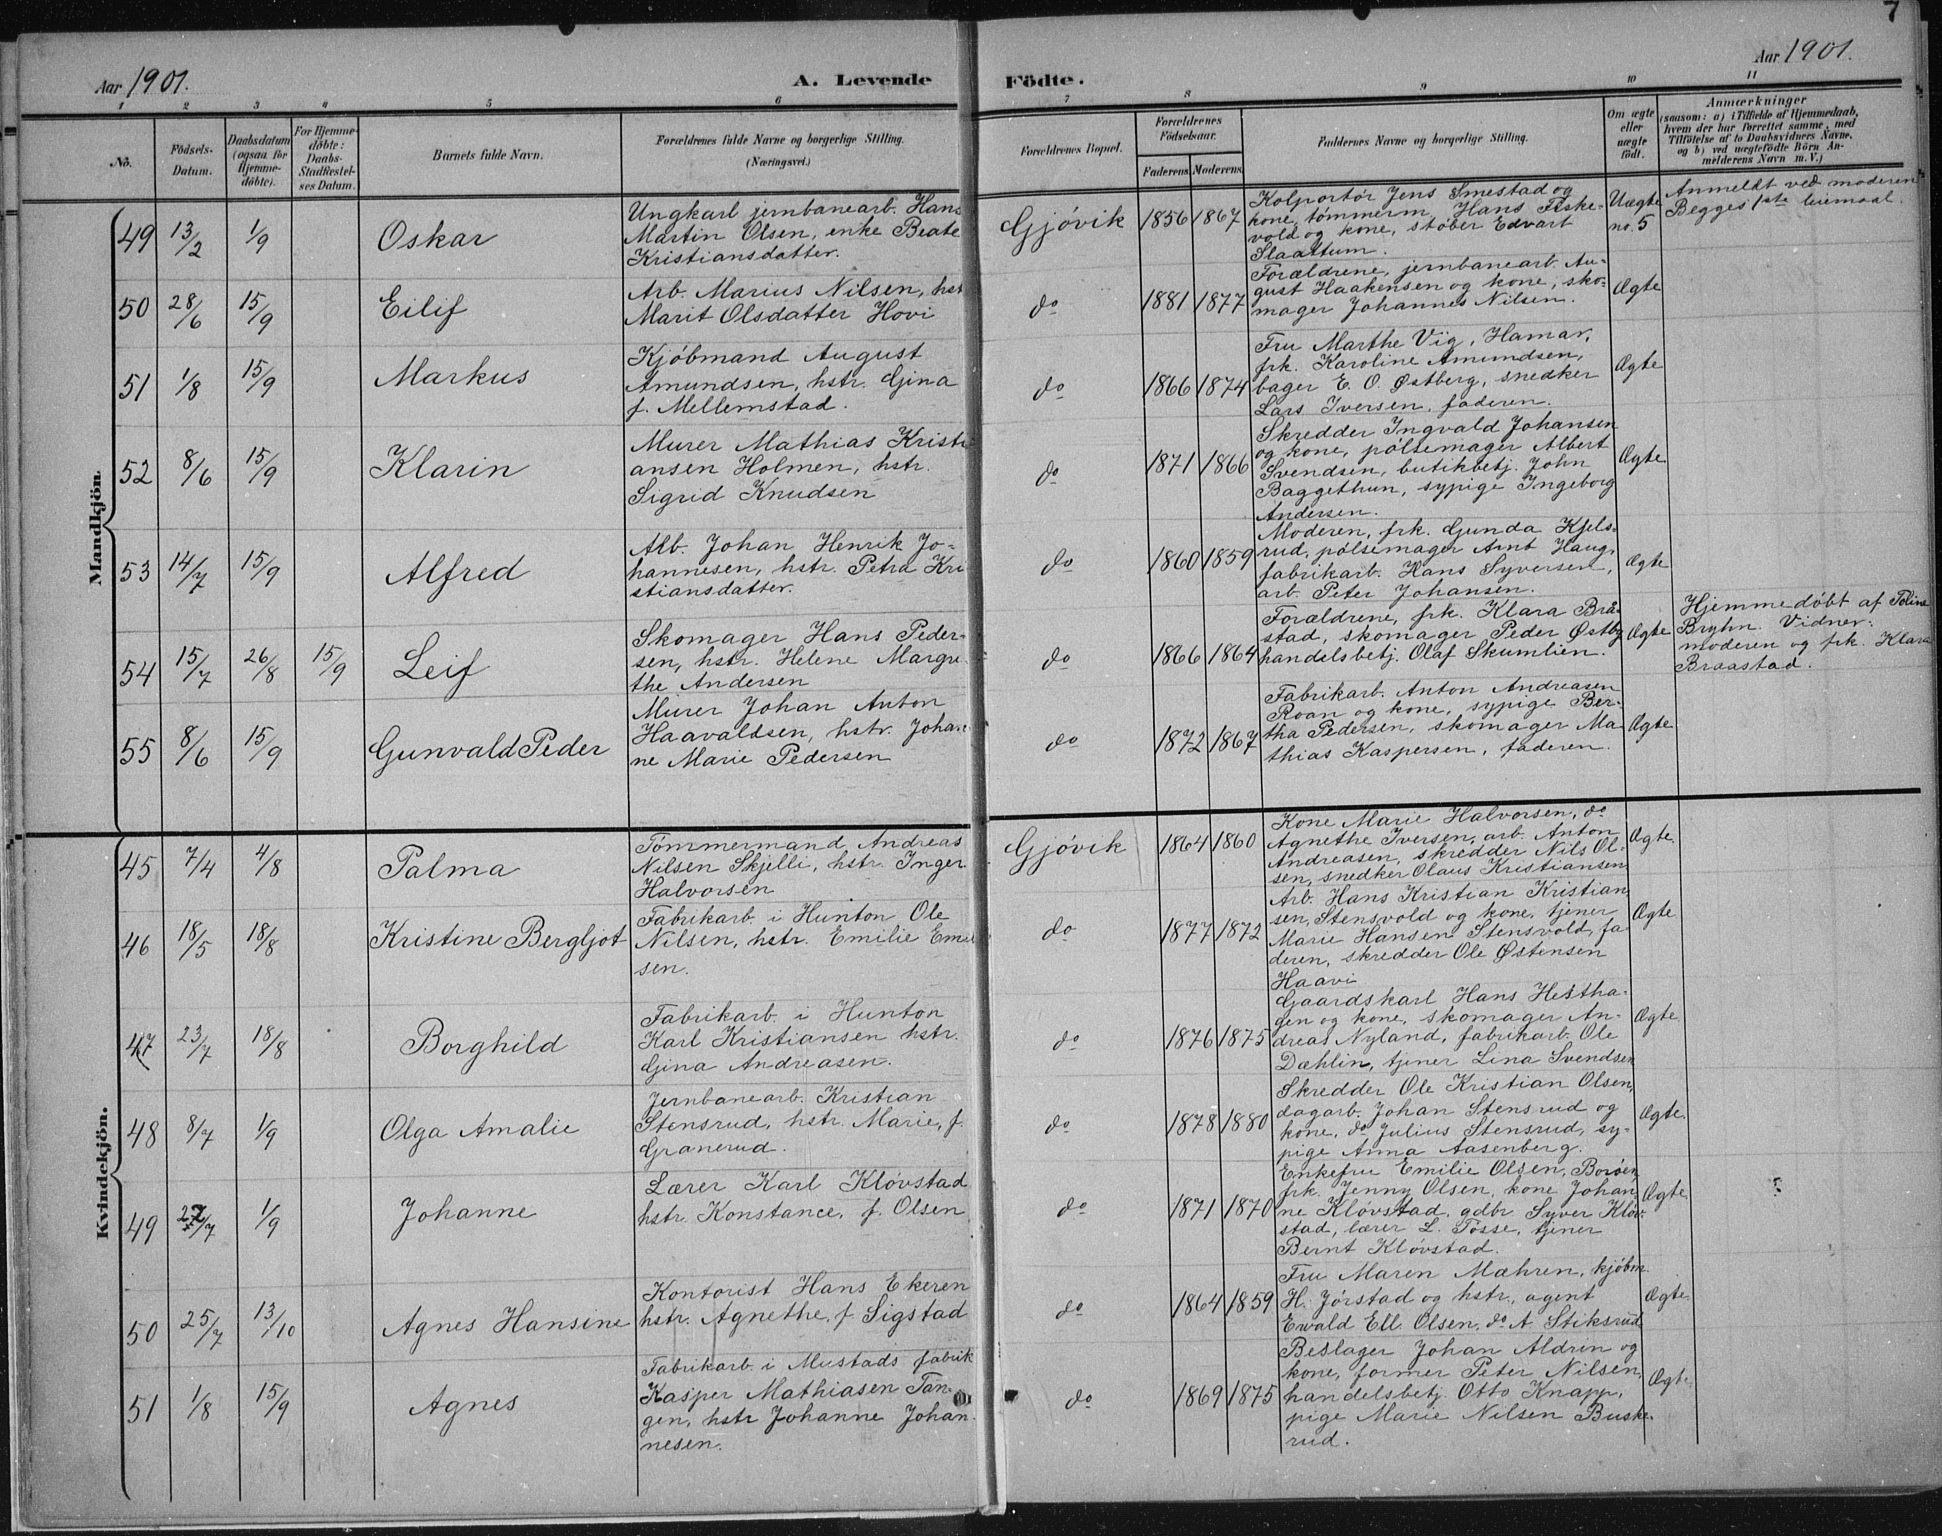 7
Aar 1901.
A. Levende Födte.
Aar 1901.
1 2 3 4 5 6 7 8 9 10 11
No.
Födsels-
Datum.
Daabsdatum
(ogsaa for
Hjemme-
döbte).
For Hjemme-
döbte:
Daabs-
Stadfæstel-
ses Datum.
Barnets fulde Navn.
Forældrenes fulde Navne og borgerlige Stilling.
(Næringsvei.)
Forældrenes Bopæl.
Forældrenes
Födselsaar.
Faderens. Moderens.
Faddernes Navne og borgerlige Stilling.
Om ægte
eller
uægte
födt.
Anmærkninger
(saasom: a) i Tilfælde af Hjemmedaab,
hvem der har forrettet samme, med
Tilföielse af to Daabsvidners Navne,
og b) ved uægtefödte Börn An-
melderens Navn m. V.)
Mandkjön.
49 13/2 1/9 Oskar
Ungkarl jernbanearb. Hans
Martin Olsen, enke Beate
Kristiansdatter.
Gjövik 1856 1867
Kolportör Jens Smestad og
kone, tömmerm. Hans Fiske-
vold og kone, stöber Edvart
Slaattum.
Uægte
no. 5
Anmeldt ved moderen
Begges 1ste leiemaal.
50 28/6 15/9 Eilif
Arb. Marius Nilsen, hstr
Marit Olsdatter Hovi
do 1881 1877
Forældrene, jernbanearb. Au-
gust Haakensen og kone, sko-
mager Johannes Nilsen.
Ægte
51 1/8 15/9 Markus
Kjöbmand August
Amundsen, hstr. Gina
f. Mellemstad.
do 1866 1874
Fru Marthe Vig, Hamar,
frk. Karoline Amundsen,
bager E. O. Østberg, snedker
Lars Iversen, faderen.
Ægte
52 8/6 15/9 Klarin
Murer Mathias Kristi
ansen Holmen, hstr.
Sigrid Knudsen
do 1871 1866
Skredder Ingvald Johansen
og kone, pölsemager Albert
Svendsen, butikbetj. John
Baggethun, sypige Ingeborg
Andersen.
Ægte
53 14/7 15/9 Alfred
Arb. Johan Henrik Jo-
hannesen, hstr. Petra Kri
stiansdatter.
do 1860 1859
Moderen, frk. Gunda Kjels-
rud, pölsemager Arnt Haug,
fabrikarb. Hans Syversen,
arb. Peter Johansen.
Ægte
54 15/7 26/8 15/9 Leif
Skomager Hans Peder-
sen, hstr. Helene Margre-
the Andersen
do 1866 1864
Forældrene, frk. Klara Brå-
stad, skomager Peder Østby
handelsbetj. Olaf Skumlien.
Ægte
Hjemmedöbt af Toline
Bryhn. Vidner:
moderen og frk. Klara
Braastad.
55 8/6 15/9 Gunvald Peder
Murer Johan Anton
Haavaldsen, hstr. Johan
ne Marie Pedersen
do 1872 1867
Fabrikarb. Anton Andreasen
Roan og kone, sypige Ber-
tha Pedersen, skomager Ma-
thias Kaspersen, faderen.
Ægte
Kvindekjön.
45 7/4 4/8 Palma
Tömmermand Andreas
Nilsen Skjelli, hstr. Inger
Halvorsen
Gjövik 1864 1860
Kone Marie Halvorsen, do
Agnethe Iversen, arb. Anton
Andreasen, skredder Nils Ol-
sen, snedker Olaus Kristiansen
Ægte
46 18/5 18/8 Kristine Bergljot
Fabrikarb. i Hunton Ole
Nilsen, hstr. Emilie Emil
sen.
do 1877 1872
Arb. Hans Kristian Kristian
sen, Stensvold og kone, tjener
Marie Hansen Stensvold, fa
deren, skredder Ole Østensen
Haavi
Ægte
47 23/7 18/8 Borghild
Fabrikarb. i Hunton
Karl Kristiansen hstr.
Gina Andreasen.
do 1876 1875
Gaardskarl Hans Hestha-
gen og kone, skomager An-
dreas Nyland, fabrikarb. Ole
Dæhlin, tjener Lina Svendsen
Ægte
48 8/7 1/9 Olga Amalie
Jernbanearb. Kristian
Stensrud, hstr. Marie, f.
Granerud.
do 1878 1880
Skredder Ole Kristian Olsen,
dagarb. Johan Stensrud og
kone, do Julius Stensrud, sy-
pige Anna Aasenberg.
Ægte.
49 27/7 1/9 Johanne
Lærer Karl Klövstad
hstr. Konstance, f. Olsen
do 1871 1870
Enkefru Emilie Olsen, Boröen,
frk. Jenny Olsen, kone Johan
ne Klövstad, gdbr Syver Klöv-
stad, lærer L. Tosse, tjener
Bernt Klövstad.
Ægte
50 25/7 13/10 Agnes Hansine
Kontorist Hans Ekeren
hstr. Agnethe, f. Sigstad
do 1864 1859
Fru Maren Mæhren, kjöbm.
H. Jörstad og hstr., agent
Ewald Ell. Olsen, do A. Stiksrud
Ægte
51 1/8 15/9 Agnes
Fabrikarb. i Mustads fabrik
Kasper Mathiasen Tan-
gen, hstr Johanne Johan-
nesen.
do 1869 1875
Beslager Johan Aldrin og
kone, former Peter Nilsen,
handelsbetj. Otto Knapp,
pige Marie Nilsen Buske-
rud.
Ægte